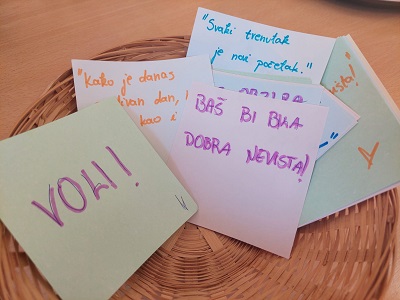 "Svaki trenutak
je novi početak."
"Kako je danas
divan dan,
kao i
BAŠ BI BILA
DOBRA NEVISTA!
VOLI!
V